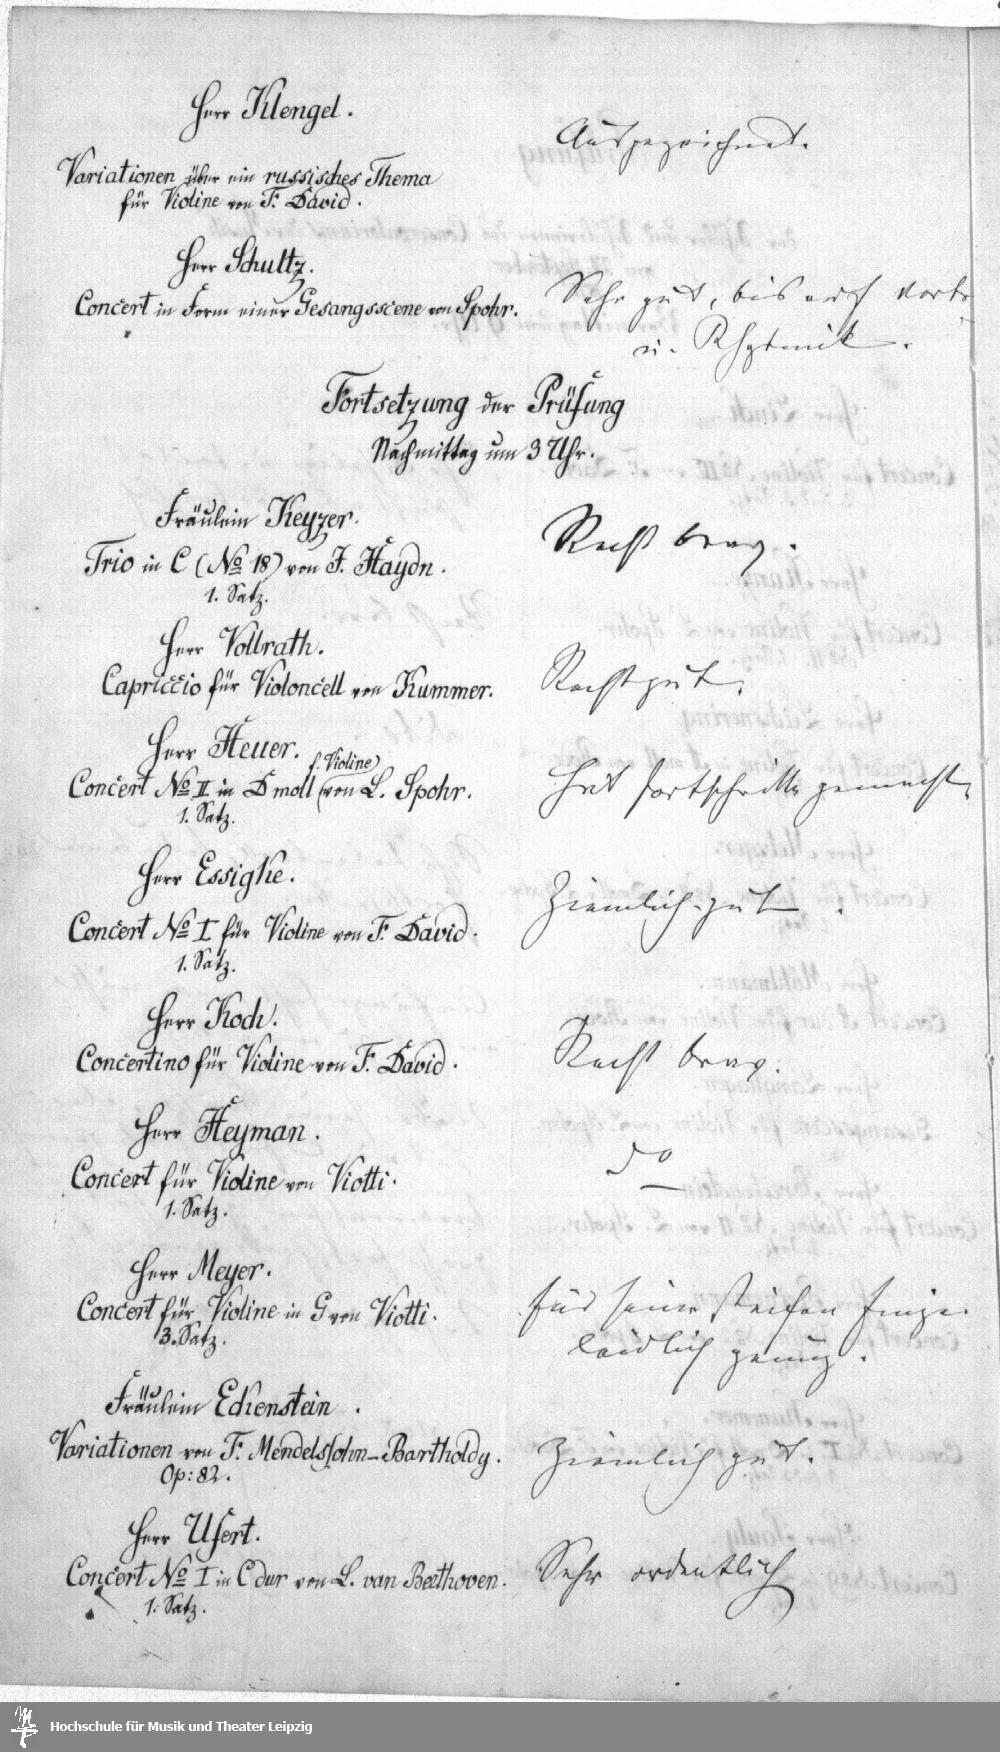 Herr Klengel.
Ausgezeichnet.
Variationen über ein russisches Thema
für Violine von F. David.
Herr Schultz.
Concert in Form einer Gesangsscene von Spohr.
Sehr gut, bis auf
u. Rhytmik.
Fortsetzung der Prüfung
Nachmittag um 3 Uhr.
Fräulein Keyzer.
Recht brav.
Trio in C (No 18) von J. Haydn.
1. Satz.
Herr Vollrath.
Recht gut.
Capriccio für Violoncell von Kummer.
Herr Heuer.
f. Violine
Concert No II in D moll (von L. Spohr.
1. Satz.
Hat Fortschritte gemacht.
Herr Essigke.
Ziemlich gut.
Concert No I für Violine von F. David.
1. Satz.
Herr Koch.
Recht brav.
Concertino für Violine von F. David.
Herr Heyman.
do
Concert für Violine von Viotti.
1. Satz.
Herr Meyer.
Concert für Violine in G von Viotti.
3. Satz.
Für seine steifen Finger
leidlich genug.
Fräulein Eckenstein.
Variationen von F. Mendelssohn-Bartholdy.
Op: 82.
Ziemlich gut.
Herr Ufert.
Concert No I in C dur von L. van Beethoven.
1. Satz.
Sehr ordentlich
Hochschule für Musik und Theater Leipzig